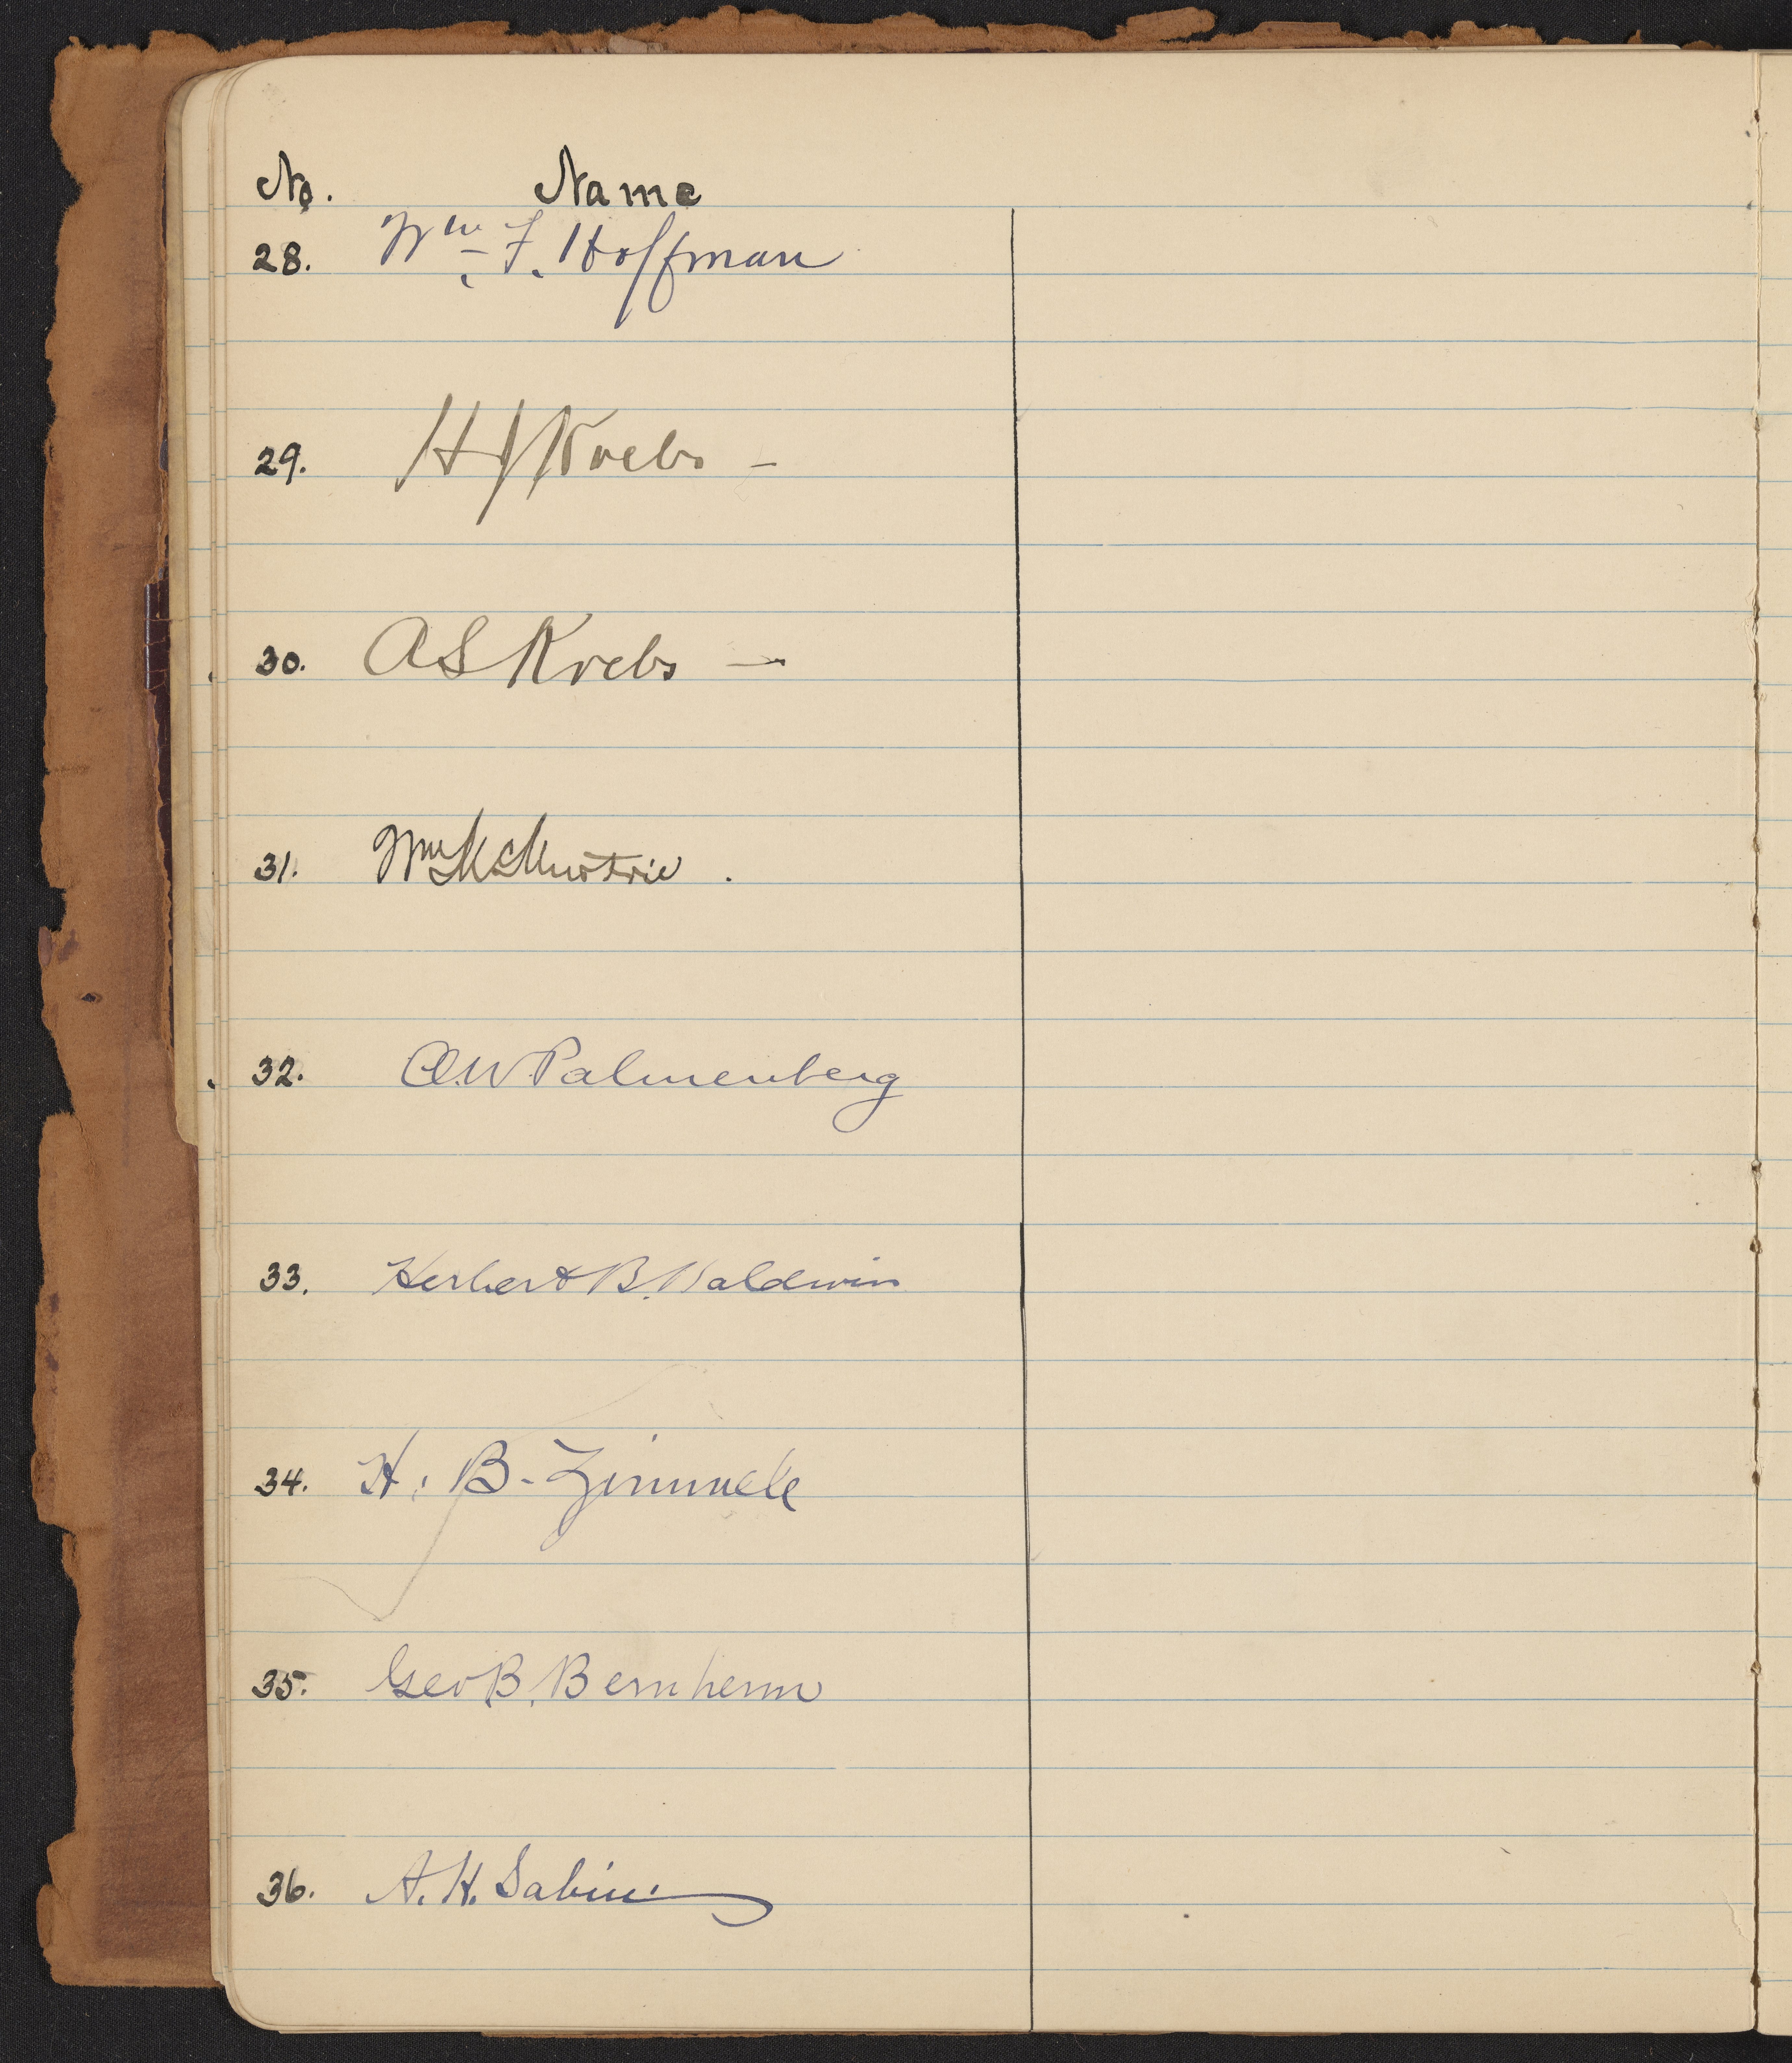 No. Name
28. Wm. F. Hoffman
29. H J Krebs –
30. A S Krebs –
31. Wm McMurtrie .
32. A.W. Palmenberg
33. Herbert B. Baldwin
34. H. B.
35. Geo B. Bernheim
36. A. H. Sabin